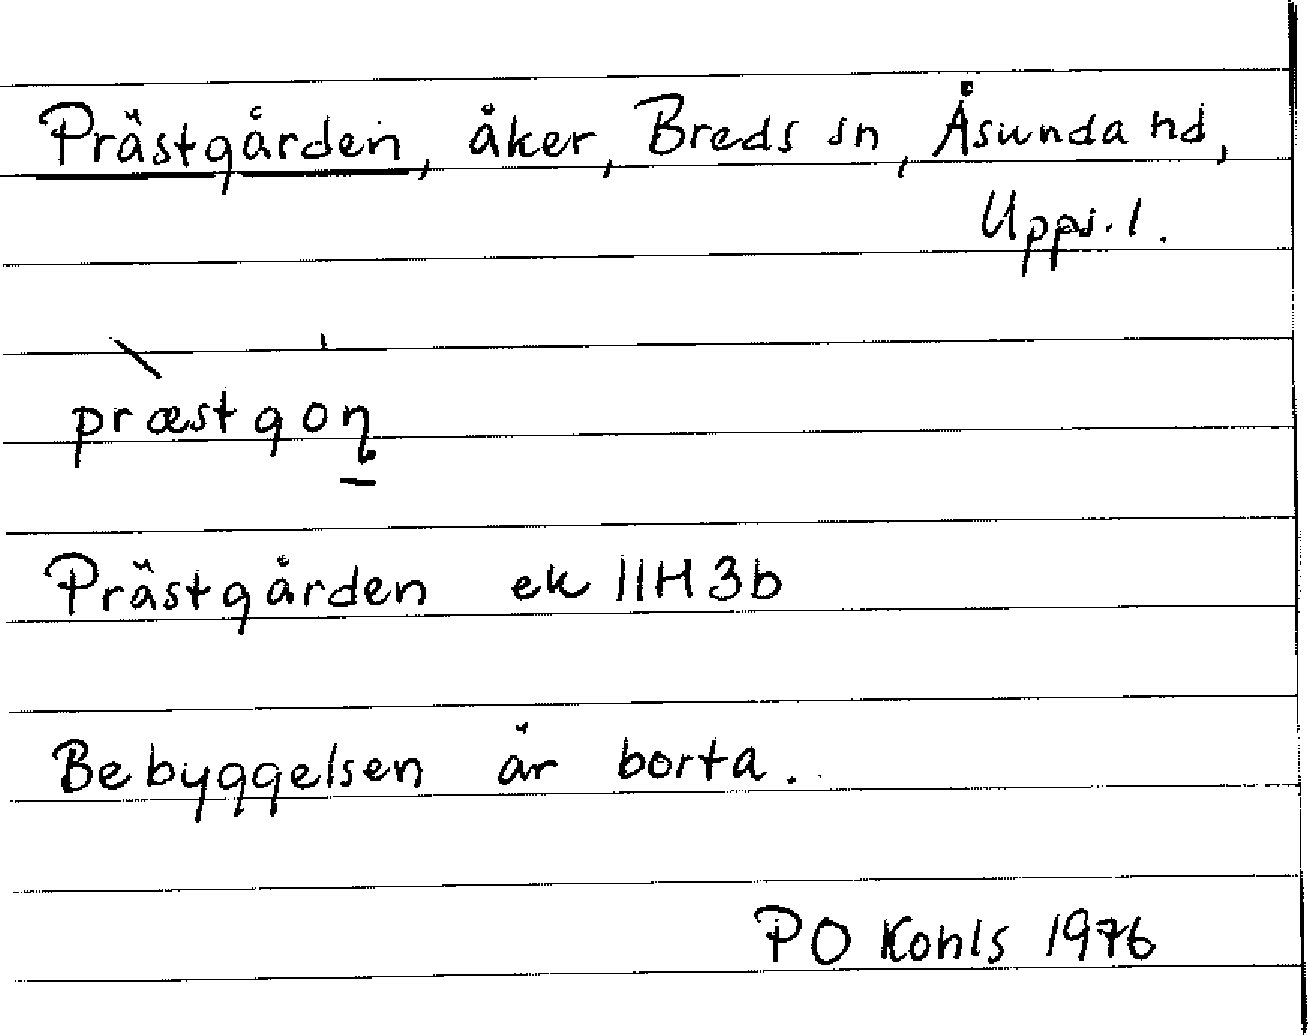 Prästgården, åker, Breds sn, Åsunda hd,
Upps. l.
præstgoṇ
Prästgården ek 11H3b
Bebyggelsen är borta.
PO Kohls 1976